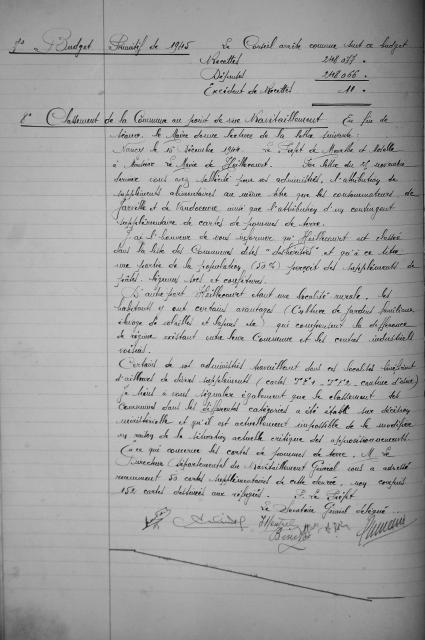 7° Budget Primitif de 1945 Le Conseil arrête comme suit ce budget
Recettes 248.077.
Dépenses 248.066.
Excédent de Recettes 11.
8° Classement de la Commune au point de vue Ravitaillement En fin de
séance, le Maire donne lecture de la lettre suivante :
Nancy le 15 Décembre 1944 Le Préfet de Meurthe et Moselle
à Monsieur Le Maire de Heillecourt. Par lettre du novembre
dernier vous avez sollicité pour vos administrés, l'attribution de
suppléments alimentaires au même titre que les consommateurs de
Jarville et de Vandoeuvre, ainsi que l'attribution d'un contingent
supplémentaire de cartes de pommes de terre.
J'ai l'honneur de vous informer qu'Heillecourt est classée
dans la liste des Communes dites " " et qu'à ce titre
une partie de la population (50%) perçoit des suppléments de
pâtes, légumes secs et confitures.
D'autre part Heillecourt étant une localité rurale, les
habitants y ont certains avantages (Culture de jardins familiaux
élevage de volailles et lapins etc) qui compensent la différence
de régime existant entre leur Commune et les centres industriels
voisins.
Certains de vos administrés travaillant dans ces localités bénéficient
d'ailleurs de divers suppléments (cartes T1, T2, )
Je tiens à vous signaler également que le classement des
Communes dans les différentes catégories a été établi sur décision
ministérielle et qu'il est actuellement impossible de le modifier
en raison de la situation actuelle critique des approvisionnements.
En ce qui concerne les cartes de pommes de terre, M. le
Directeur Départemental du Ravitaillement Général vous a adressé
récemment 50 cartes supplémentaires de cette denrée, non compris
152 cartes destinées aux réfugiés. P. Le Préfet
Le Secrétaire Général délégué